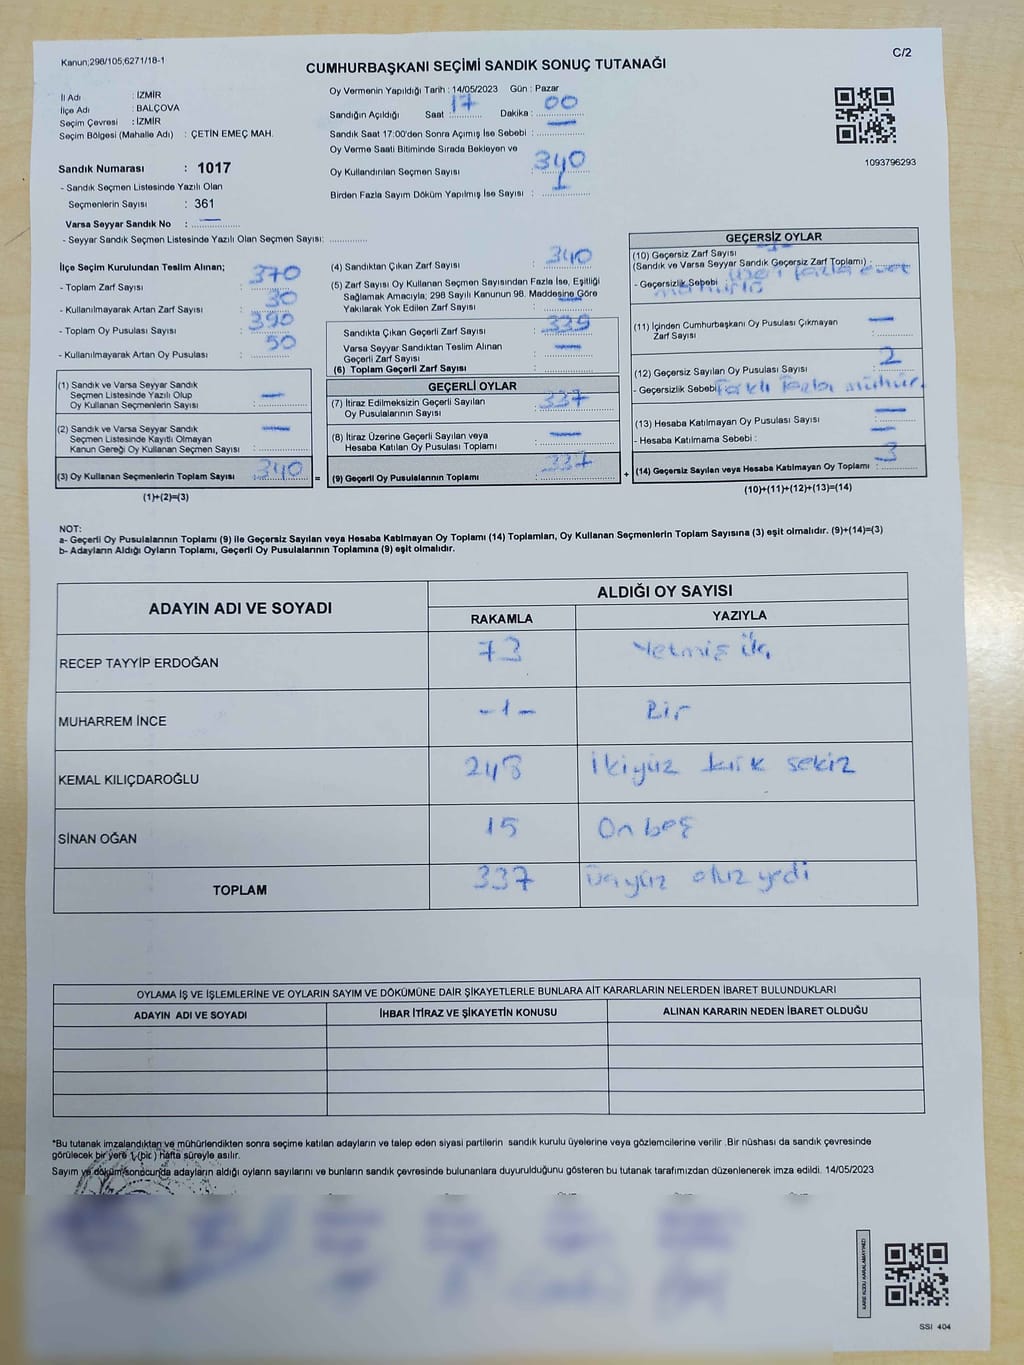 Kanun;298/105;6271/18-1
C/2
CUMHURBAŞKANI SEÇİMİ SANDIK SONUÇ TUTANAĞI
İl Adı : İZMİR
İlçe Adı : BALÇOVA
Seçim Çevresi : İZMİR
Seçim Bölgesi (Mahalle Adı) : ÇETİN EMEÇ MAH.
Sandık Numarası : 1017
- Sandık Seçmen Listesinde Yazılı Olan
Seçmenlerin Sayısı : 361
Varsa Seyyar Sandık No : —
- Seyyar Sandık Seçmen Listesinde Yazılı Olan Seçmen Sayısı:
Oy Vermenin Yapıldığı Tarih : 14/05/2023 Gün : Pazar
Sandığın Açıldığı Saat : 17 Dakika : 00
Sandık Saat 17:00'den Sonra Açımış İse Sebebi : —
Oy Verme Saati Bitiminde Sırada Bekleyen ve
Oy Kullandırılan Seçmen Sayısı : 340
Birden Fazla Sayım Döküm Yapılmış İse Sayısı : 1
1093796293
İlçe Seçim Kurulundan Teslim Alınan;
- Toplam Zarf Sayısı : 370
- Kullanılmayarak Artan Zarf Sayısı : 30
- Toplam Oy Pusulası Sayısı : 390
- Kullanılmayarak Artan Oy Pusulası : 50
(1) Sandık ve Varsa Seyyar Sandık
Seçmen Listesinde Yazılı Olup
Oy Kullanan Seçmenlerin Sayısı : —
(2) Sandık ve Varsa Seyyar Sandık
Seçmen Listesinde Kayıtlı Olmayan
Kanun Gereği Oy Kullanan Seçmen Sayısı : —
(3) Oy Kullanan Seçmenlerin Toplam Sayısı : 340
(1)+(2)=(3)
(4) Sandıktan Çıkan Zarf Sayısı : 340
(5) Zarf Sayısı Oy Kullanan Seçmen Sayısından Fazla İse, Eşitliği
Sağlamak Amacıyla; 298 Sayılı Kanunun 98. Maddesine Göre
Yakılarak Yok Edilen Zarf Sayısı : —
Sandıkta Çıkan Geçerli Zarf Sayısı : 339
Varsa Seyyar Sandıktan Teslim Alınan
Geçerli Zarf Sayısı : —
(6) Toplam Geçerli Zarf Sayısı :
GEÇERLİ OYLAR
(7) İtiraz Edilmeksizin Geçerli Sayılan
Oy Pusulalarının Sayısı : 337
(8) İtiraz Üzerine Geçerli Sayılan veya
Hesaba Katılan Oy Pusulası Toplamı : —
= (9) Geçerli Oy Pusulalarının Toplamı : 337 +
GEÇERSİZ OYLAR
(10) Geçersiz Zarf Sayısı 1
(Sandık ve Varsa Seyyar Sandık Geçersiz Zarf Toplamı) :
- Geçersizlik Sebebi fazla evet
(11) İçinden Cumhurbaşkanı Oy Pusulası Çıkmayan
Zarf Sayısı : —
(12) Geçersiz Sayılan Oy Pusulası Sayısı : 2
- Geçersizlik Sebebi Farklı fazla mühür.
(13) Hesaba Katılmayan Oy Pusulası Sayısı : —
- Hesaba Katılmama Sebebi : —
(14) Geçersiz Sayılan veya Hesaba Katılmayan Oy Toplamı : 3
(10)+(11)+(12)+(13)=(14)
NOT:
a- Geçerli Oy Pusulalarının Toplamı (9) ile Geçersiz Sayılan veya Hesaba Katılmayan Oy Toplamı (14) Toplamları, Oy Kullanan Seçmenlerin Toplam Sayısına (3) eşit olmalıdır. (9)+(14)=(3)
b- Adayların Aldığı Oyların Toplamı, Geçerli Oy Pusulalarının Toplamına (9) eşit olmalıdır.
ADAYIN ADI VE SOYADI ALDIĞI OY SAYISI
RAKAMLA YAZIYLA
RECEP TAYYİP ERDOĞAN 73 Yetmiş
MUHARREM İNCE -1- Bir
KEMAL KILIÇDAROĞLU 248 İkiyüz kırk sekiz
SİNAN OĞAN 15 On beş
TOPLAM 337 Üçyüz otuz yedi
OYLAMA İŞ VE İŞLEMLERİNE VE OYLARIN SAYIM VE DÖKÜMÜNE DAİR ŞİKAYETLERLE BUNLARA AİT KARARLARIN NELERDEN İBARET BULUNDUKLARI
ADAYIN ADI VE SOYADI İHBAR İTİRAZ VE ŞİKAYETİN KONUSU ALINAN KARARIN NEDEN İBARET OLDUĞU
*Bu tutanak imzalandıktan ve mühürlendikten sonra seçime katılan adayların ve talep eden siyasi partilerin sandık kurulu üyelerine veya gözlemcilerine verilir .Bir nüshası da sandık çevresinde
görülecek bir yere 1 (bir) hafta süreyle asılır.
Sayım ve döküm sonucunda adayların aldığı oyların sayılarını ve bunların sandık çevresinde bulunanlara duyurulduğunu gösteren bu tutanak tarafımızdan düzenlenerek imza edildi. 14/05/2023
KARE KODU KARALAMAYINIZ!
SSI 404